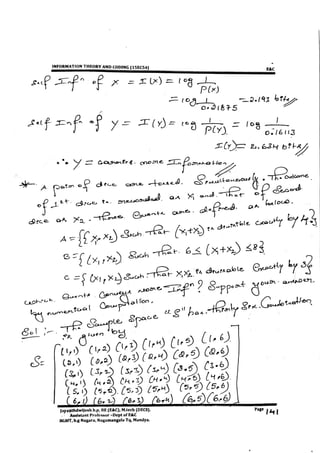 INFORMATION THEORY AND CODING (15EC54) E&C
Self Infn of X = I(X) = log 1/P(X)
= log 1/0.21875 = 2.193 bits//
Self Infn of Y = I(Y) = log 1/P(Y) = log 1/0.16113
I(Y) = 2.634 bits//
∴ Y = Gains more Information
* A pair of dice are tossed. Simultaneously The outcome
of 1st dice is X1 and that of Second
dice as X2. Three Events are defined as below.
A = {(X1, X2) Such that (X1+X2) is divisible exactly by 4}
B = {(X1, X2) Such that 6 ≤ (X1+X2) ≤ 8}
C = {(X1, X2) Such that X1X2 is divisible Exactly by 3}
which Events Conveys more Infn? Support your answer
by numerical Computation.
Sol :- The Sample Space "S" has Thirty Six Combination
is given by
S = {(1,1) (1,2) (1,3) (1,4) (1,5) (1,6)
(2,1) (2,2) (2,3) (2,4) (2,5) (2,6)
(3,1) (3,2) (3,3) (3,4) (3,5) (3,6)
(4,1) (4,2) (4,3) (4,4) (4,5) (4,6)
(5,1) (5,2) (5,3) (5,4) (5,5) (5,6)
(6,1) (6,2) (6,3) (6,4) (6,5) (6,6)
Jayanthdwijesh h.p, BE (E&C), M.tech (DECS), Page 141
Assistant Professor -Dept of E&C
BGSIT, B.g Nagara, Nagamangala Tq, Mandya.